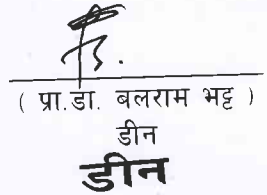 ( प्रा.डा. बलराम भट्ट )
डीन
डीन